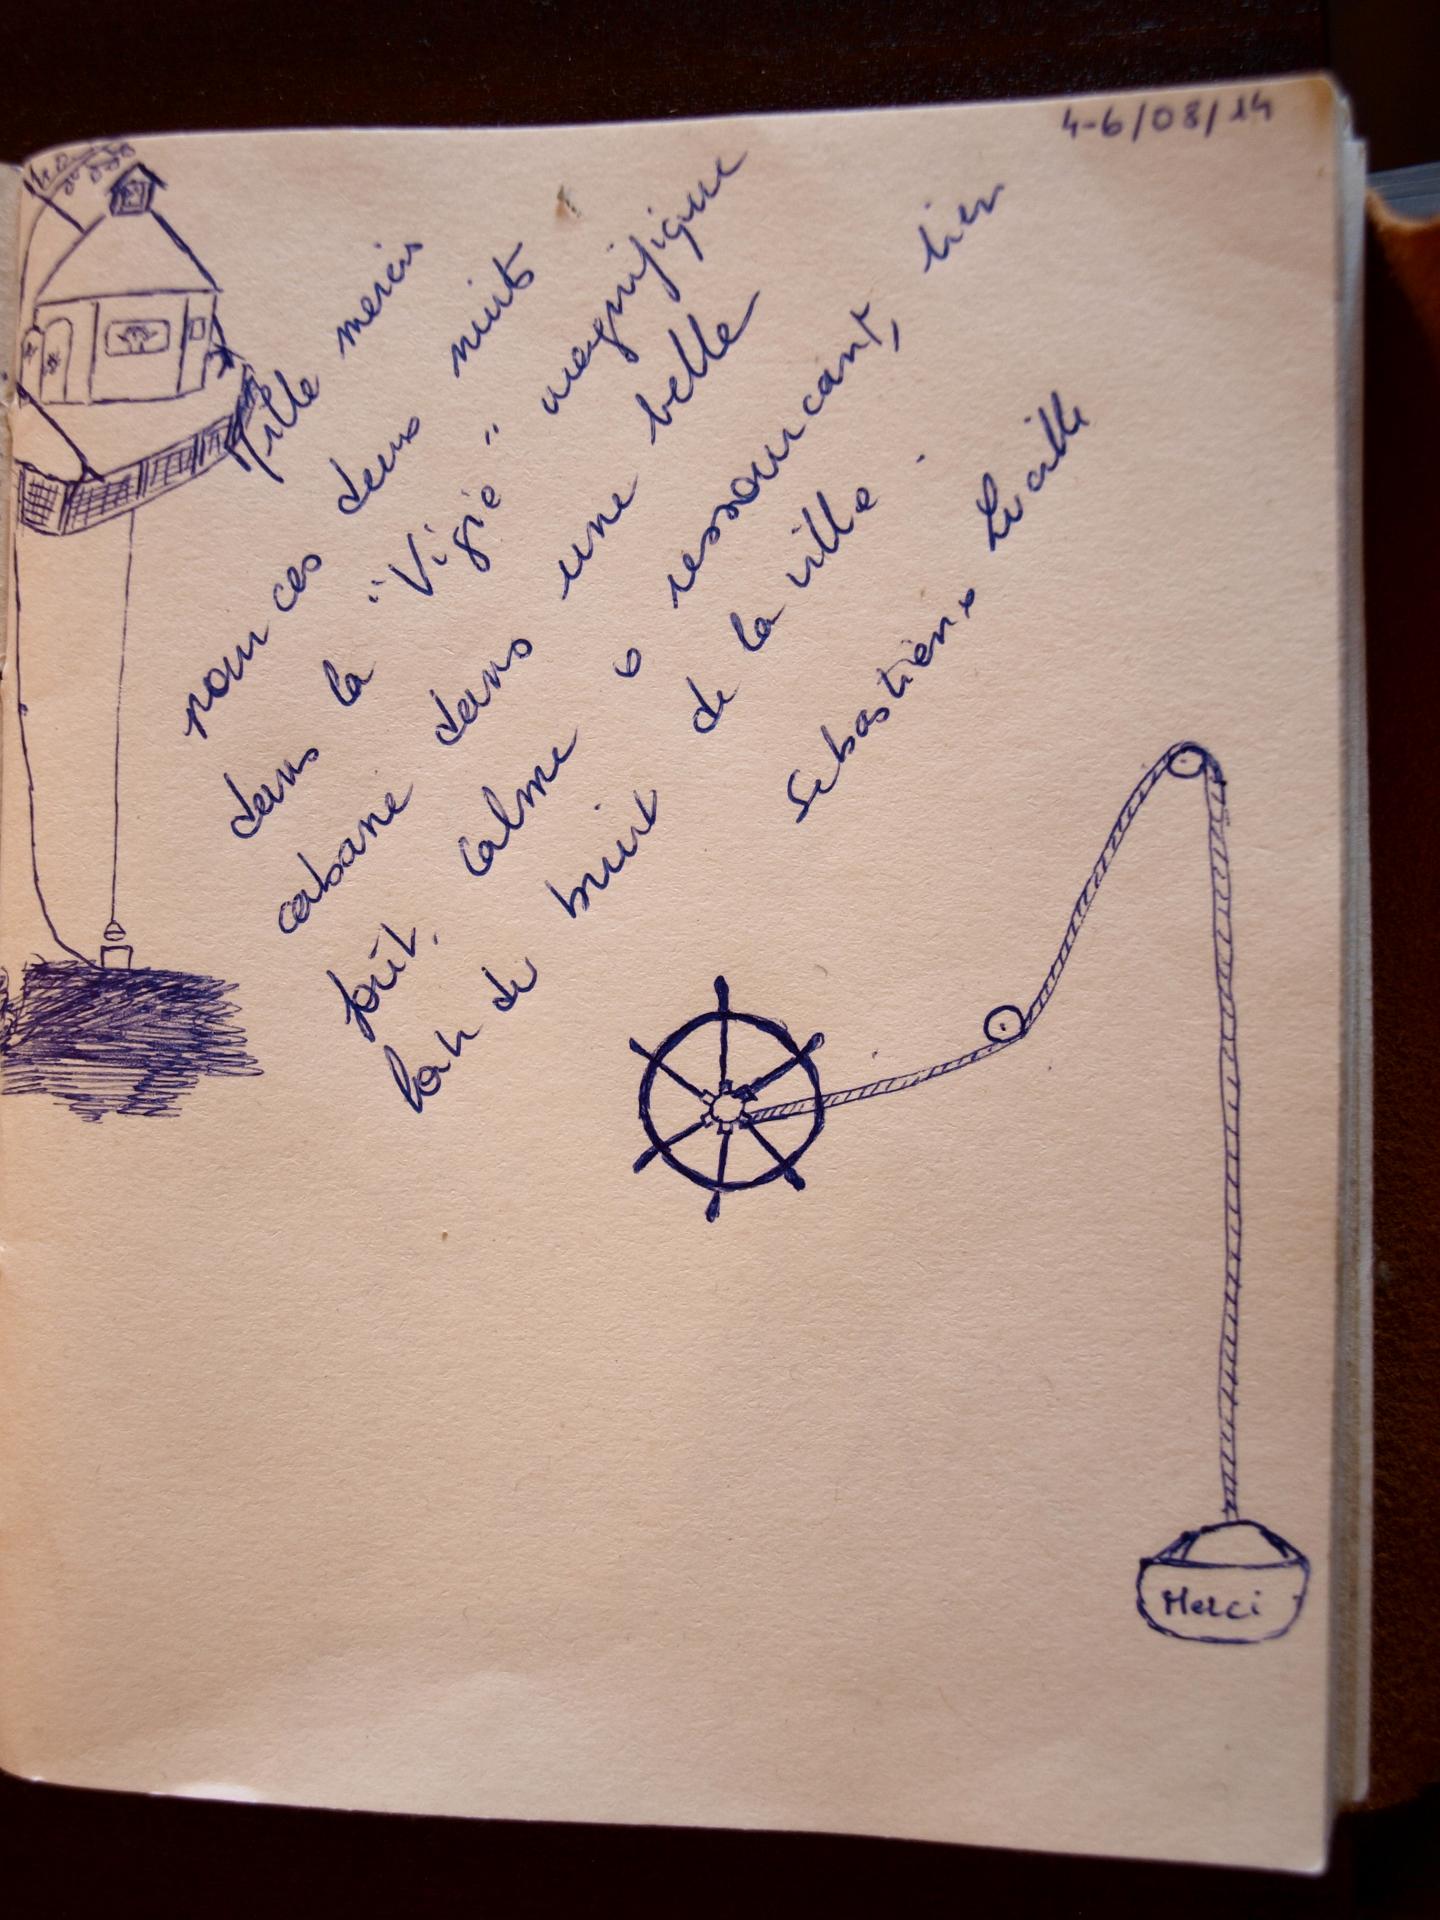 4-6/08/14
Mille mercis
pour ces deux nuits
dans la "Vigie" magnifique
cabane dans une belle
forêt. Calme & ressourcant, bien
loin de bruit de la ville.
Sebastien & Lucille
Merci